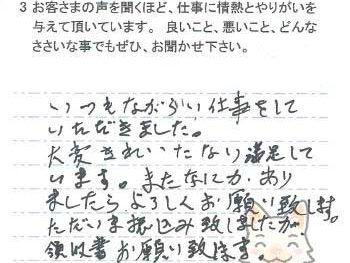 3 お客さまの声を聞くほど、仕事に情熱とやりがいを
与えて頂いています。良いこと、悪いこと、どんな
ささいな事でもぜひ、お聞かせ下さい。
いつもながらいい仕事をして
いただきました。
大変きれいになり満足して
います。またなにかあり
ましたらよろしくお願い致します。
ただいま振込み致しましたが
領収書お願い致します。